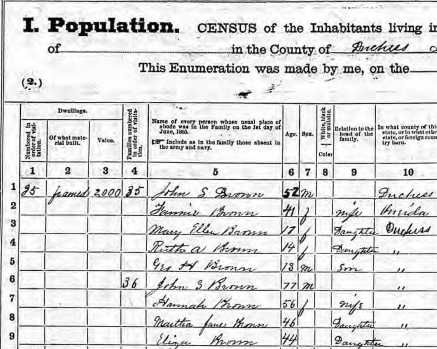 I. Population. CENSUS of the Inhabitants living in
of in the County of Duchess
This Enumeration was made by me, on the
(2.)
Dwellings.
Numbered in order of visitation.
Of what material built.
Value.
Families numbered in order of visitation.
Name of every person whose usual place of abode was in the Family on the 1st day of June, 1865.
Include as in the family those absent in the army and navy.
Age.
Sex.
Color
Relation to the head of the family.
In what county of this state, or in what other state, or foreign country born.
1 2 3 4 5 6 7 8 9 10
1 35 framed 2000 35 John S Brown 52 m Duchess
2 Fannie Brown 41 f wife
3 Mary Ellen Brown 17 f Daughter Duchess
4 Ruth A Brown 14 f Daughter "
5 Geo H Brown 13 m Son "
6 36 John G Brown 77 m "
7 Hannah Brown 56 f wife "
8 Martha Jane Brown 46 Daughter "
9 Eliza Brown 44 Daughter "